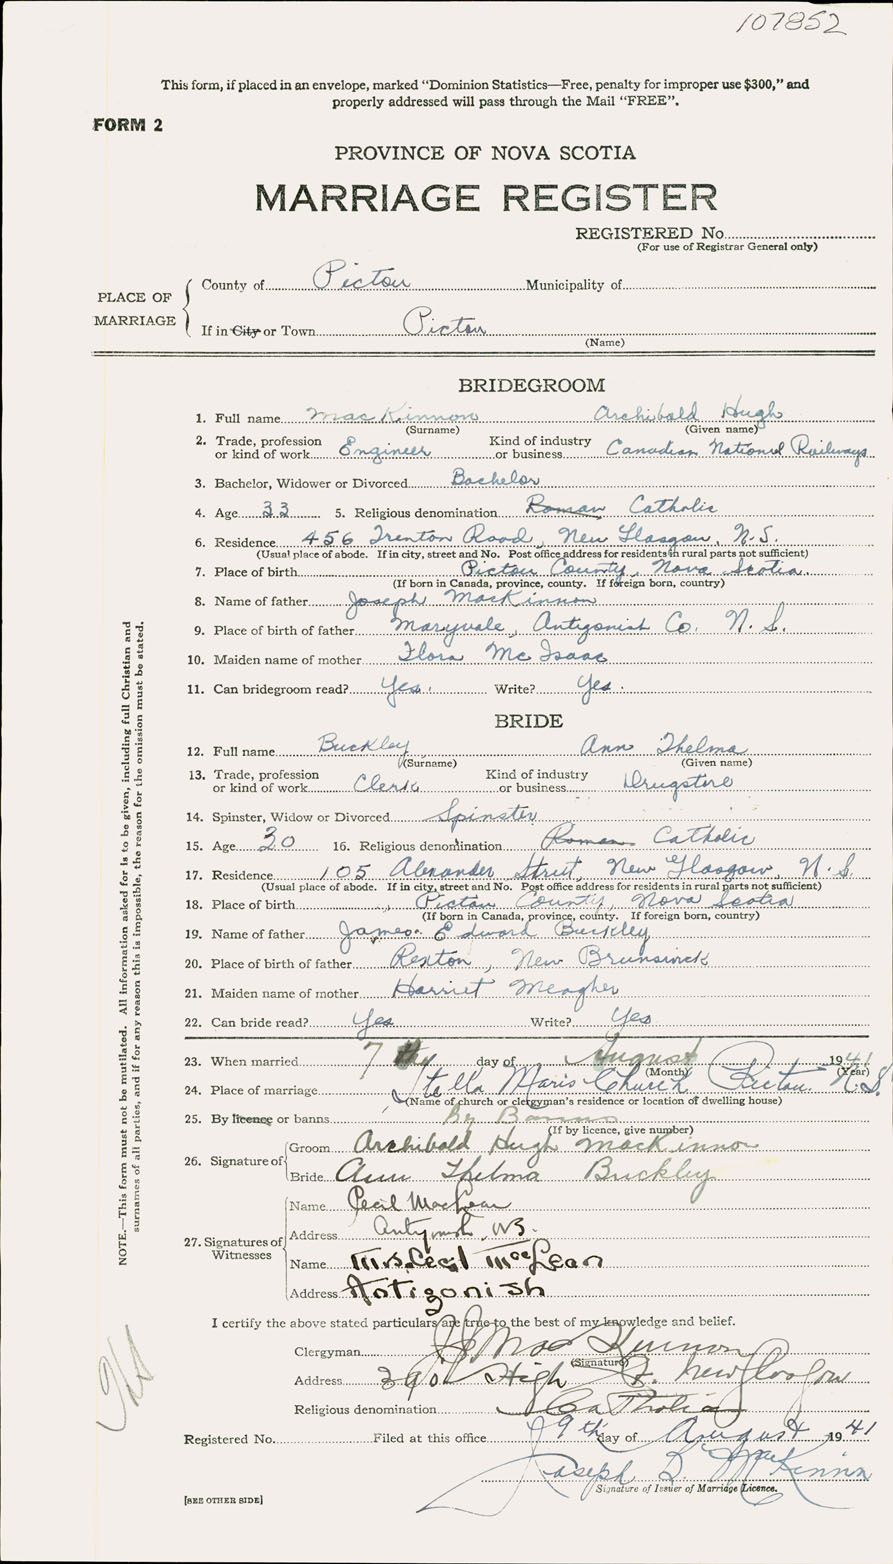 107852
This form, if placed in an envelope, marked "Dominion Statistics—Free, penalty for improper use $300," and
properly addressed will pass through the Mail "FREE".
FORM 2
PROVINCE OF NOVA SCOTIA
MARRIAGE REGISTER
REGISTERED No.
(For use of Registrar General only)
PLACE OF MARRIAGE
County of Pictou Municipality of
If in City or Town Pictou
(Name)
BRIDEGROOM
1. Full name MacKinnon Archibald Hugh
(Surname) (Given name)
2. Trade, profession or kind of work Engineer Kind of industry or business Canadian National Railways
3. Bachelor, Widower or Divorced Bachelor
4. Age 33 5. Religious denomination Roman Catholic
6. Residence 456 Trenton Road, New Glasgow, N.S.
(Usual place of abode. If in city, street and No. Post office address for residents in rural parts not sufficient)
7. Place of birth Pictou County, Nova Scotia.
(If born in Canada, province, county. If foreign born, country)
8. Name of father Joseph MacKinnon
9. Place of birth of father Maryvale, Antigonish Co. N.S.
10. Maiden name of mother Flora McIsaac
11. Can bridegroom read? Yes. Write? Yes.
BRIDE
12. Full name Buckley Ann Thelma
(Surname) (Given name)
13. Trade, profession or kind of work Clerk Kind of industry or business Drugstore
14. Spinster, Widow or Divorced Spinster
15. Age 30 16. Religious denomination Roman Catholic
17. Residence 105 Alexander Street, New Glasgow, N.S.
(Usual place of abode. If in city, street and No. Post office address for residents in rural parts not sufficient)
18. Place of birth Pictou County, Nova Scotia
(If born in Canada, province, county. If foreign born, country)
19. Name of father James Edward Buckley
20. Place of birth of father Rexton, New Brunswick
21. Maiden name of mother Harriet Meagher
22. Can bride read? Yes Write? Yes
23. When married 7 day of August 1941
(Month) (Year)
24. Place of marriage Stella Maris Church Pictou N.S.
(Name of church or clergyman's residence or location of dwelling house)
25. By licence or banns By Banns
(If by licence, give number)
26. Signature of
Groom Archibald Hugh MacKinnon
Bride Ann Thelma Buckley
27. Signatures of Witnesses
Name Cecil MacLean
Address Antigonish, N.S.
Name Mrs. Cecil MacLean
Address Antigonish
I certify the above stated particulars are true to the best of my knowledge and belief.
Clergyman MacKinnon
(Signature)
Address High St. New Glasgow
Religious denomination Catholic
Registered No. Filed at this office 9th day of August 1941
Joseph MacKinnon
Signature of Issuer of Marriage Licence.
[SEE OTHER SIDE]
NOTE.—This form must not be mutilated. All information asked for is to be given, including full Christian and
surnames of all parties, and if for any reason this is impossible, the reason for the omission must be stated.